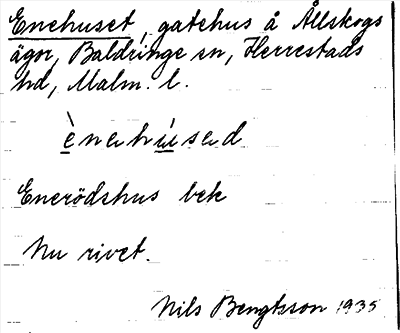 Enehuset, gatehus å Ållskogs
ägor, Baldringe sn, Herrestads
hd, Malm. l.
ènehúsed
Enerödshus bek
Nu rivet.
Nils Bengtsson 1935